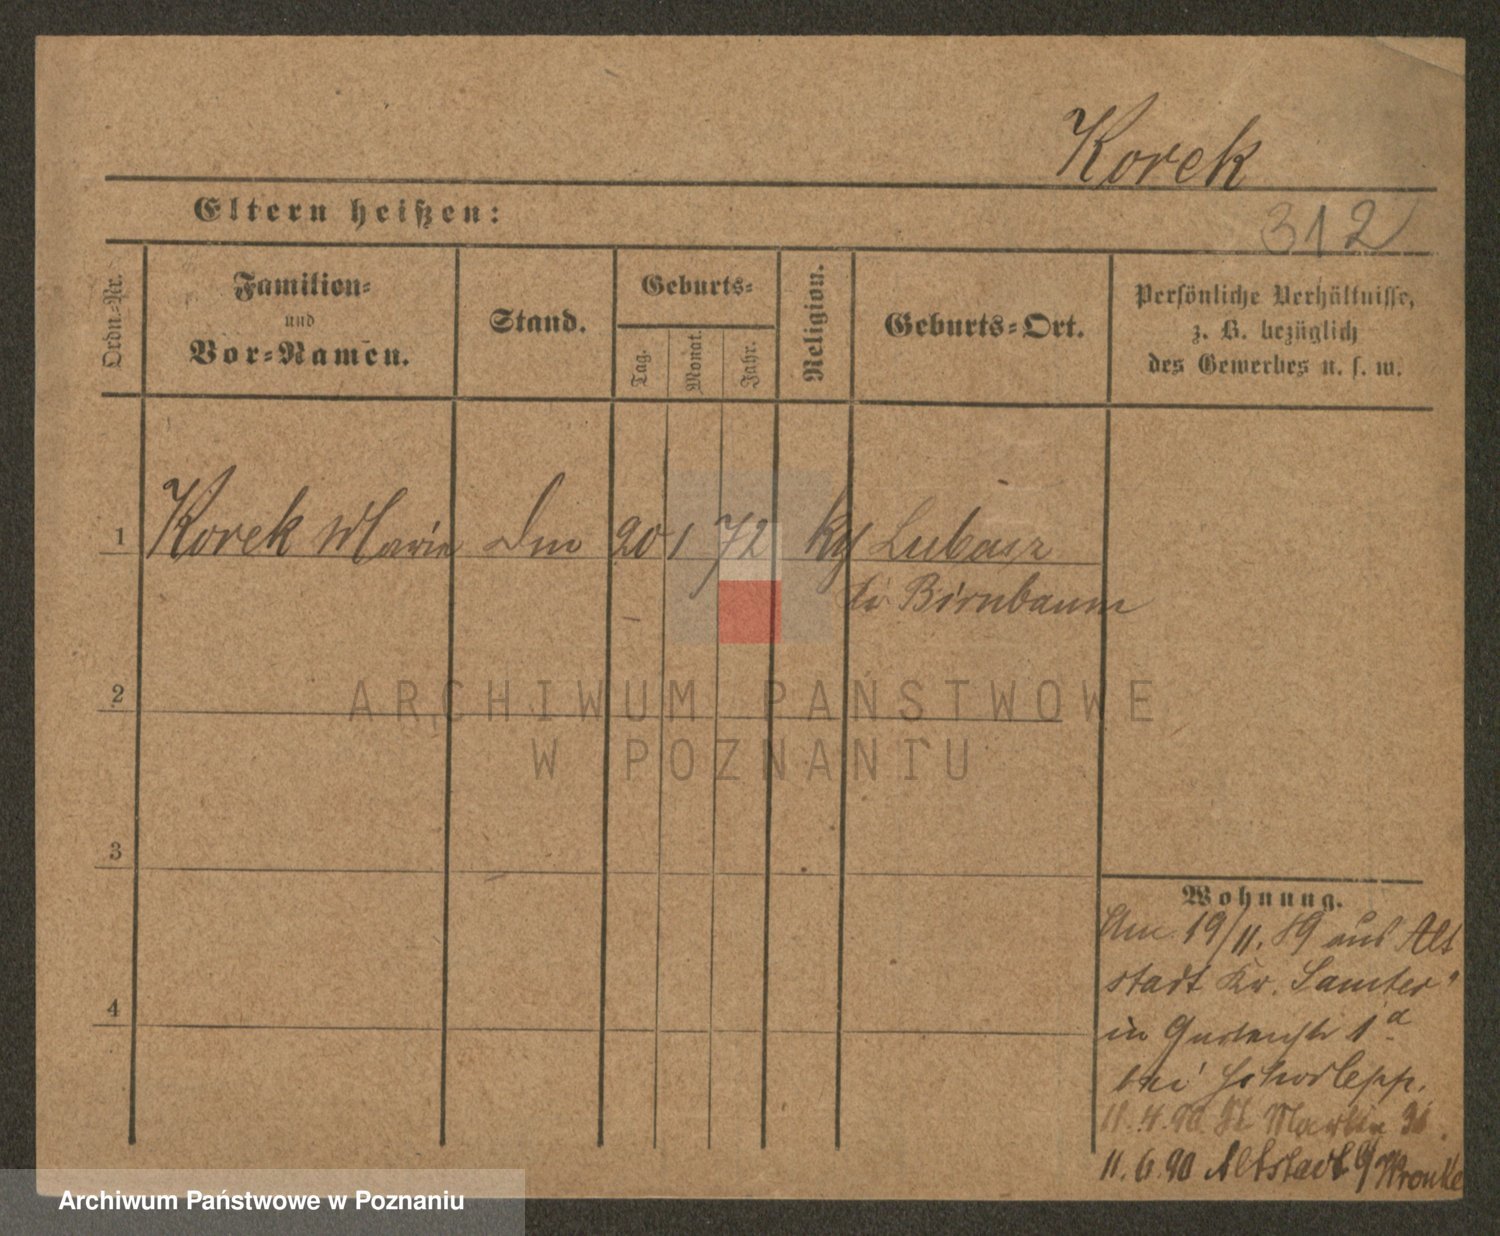 Korek
Eltern heißen:
312
Ordn.-Nr.
Familien-
und
Vor-Namen.
Stand.
Geburts-
Tag.
Monat.
Jahr.
Religion.
Geburts-Ort.
Persönliche Verhältnisse,
z. B. bezüglich
des Gewerbes u. s. w.
1 Korek Marie 20 1 72 Lubasz
Birnbaum
2
3
4
Wohnung.
Am 19/11.89 aus Alt
stadt Kr. Samter
in 1a
bei
11.4.90 St Martin
11.6.90 Altstadt Wronke
ARCHIWUM PAŃSTWOWE
W POZNANIU
Archiwum Państwowe w Poznaniu